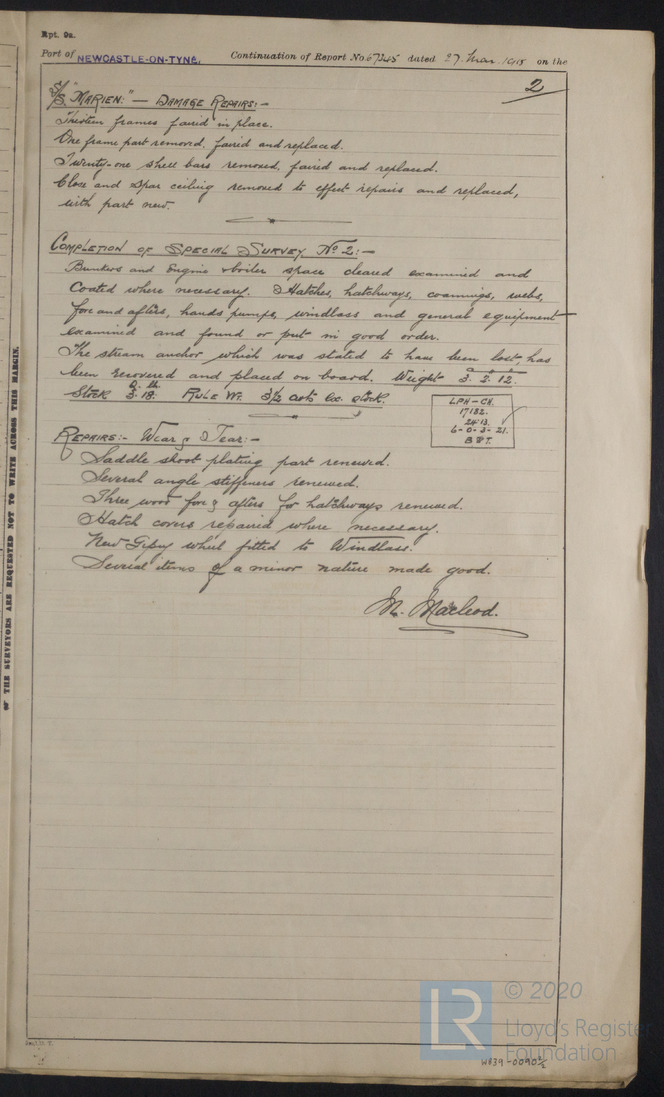 Rpt. 9a.
Port of NEWCASTLE-ON-TYNE. Continuation of Report No. 67245 dated 27 Mar 1915 on the
2
S/S "MARIEN." — DAMAGE REPAIRS:-
Thirteen frames faired in place.
One frame part removed, faired and replaced.
Twenty-one shell bars removed, faired and replaced.
Close and Spar ceiling removed to effect repairs and replaced,
with part new.
COMPLETION OF SPECIAL SURVEY No 2:-
Bunkers and Engine & boiler space cleared examined and
Coated where necessary. Hatches, hatchways, coamings, webs,
fore and afters, hand pumps, windlass and general equipment
examined and found or put in good order.
The stream anchor which was stated to have been lost, has
been recovered and placed on board. Weight 3. 2. 12.
Stock 3. 18. RULE Wt. 3½ cwts ex. stock.
LPH-CH.
17132.
24.13.
6-0-3-21.
B.W.T.
REPAIRS:- Wear & Tear:-
Saddle shoot plating part renewed.
Several angle stiffeners renewed.
Three wood fore & afters for hatchways renewed.
Hatch covers repaired where necessary.
New Gipsy wheel fitted to Windlass.
Several items of a minor nature made good.
M. Macleod.
OF THE SURVEYORS ARE REQUESTED NOT TO WRITE ACROSS THIS MARGIN.
LR © 2020
Lloyd's Register
Foundation
W839-0090½